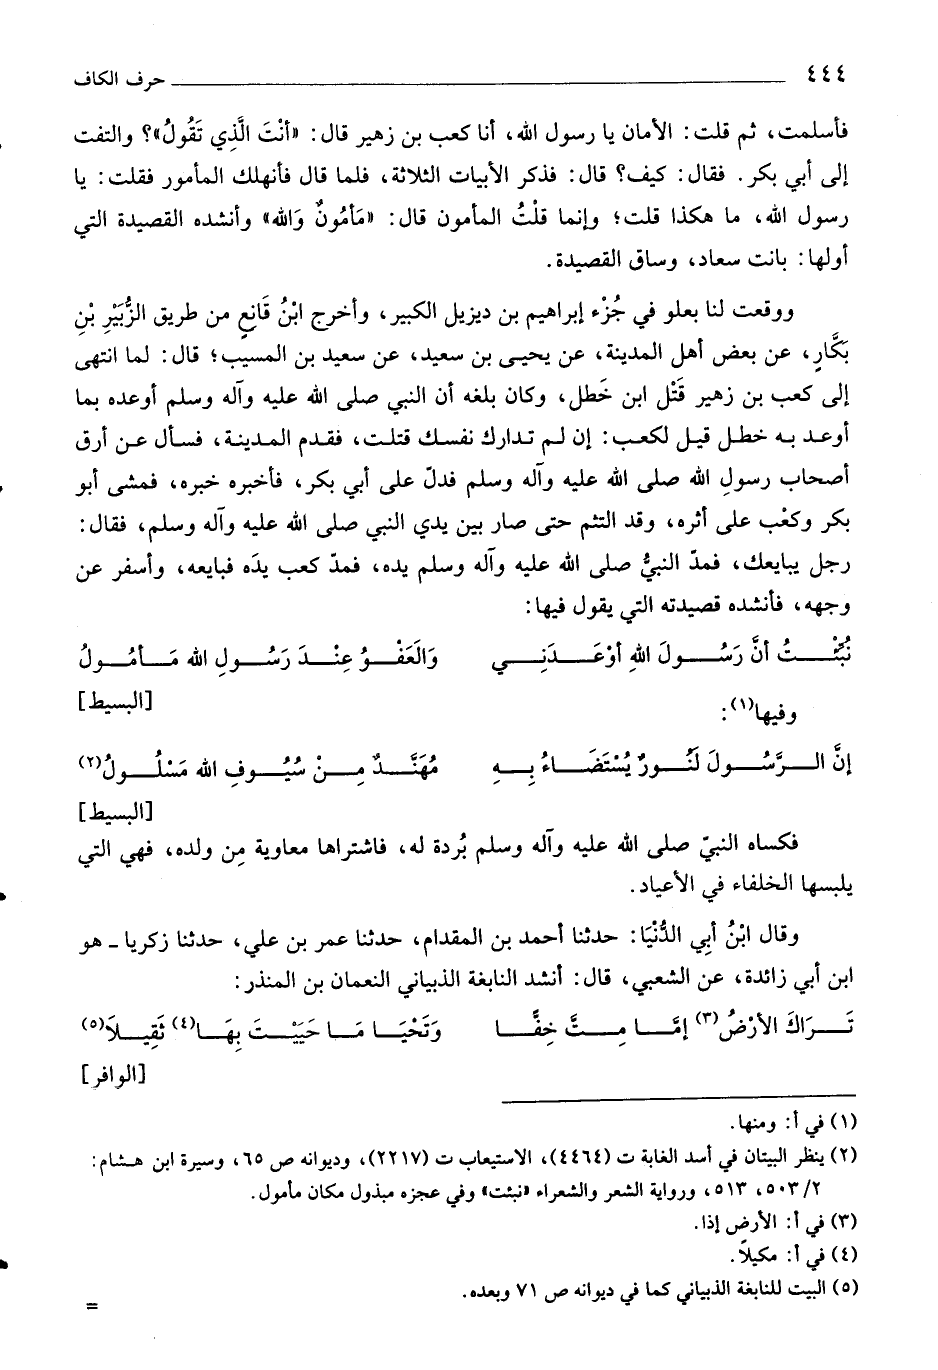 ٤٤٤ حرف الكاف
فأسلمت، ثم قلت: الأمان يا رسول الله، أنا كعب بن زهير قال: «أَنْتَ الَّذِي تَقُولُ»؟ والتفت
إلى أبي بكر. فقال: كيف؟ قال: فذكر الأبيات الثلاثة، فلما قال فأنهلك المأمور فقلت: يا
رسول الله، ما هكذا قلت؛ وإنما قلْتُ المأمون قال: «مَأمُونٌ وَالله» وأنشده القصيدة التي
أولها: بانت سعاد، وساق القصيدة.
ووقعت لنا بعلو في جُزْء إبراهيم بن ديزيل الكبير، وأخرج ابْنُ قَانِعٍ من طريق الزُّبَيْرِ بْنِ
بَكَّارٍ، عن بعض أهل المدينة، عن يحيى بن سعيد، عن سعيد بن المسيب؛ قال: لما انتهى
إلى كعب بن زهير قَتْل ابن خَطل، وكان بلغه أن النبي صلى الله عليه وآله وسلم أوعده بما
أوعد به خطل قيل لكعب: إن لم تدارك نفسك قتلت، فقدم المدينة، فسأل عن أرق
أصحاب رسول الله صلى الله عليه وآله وسلم فدلّ على أبي بكر، فأخبره خبره، فمشى أبو
بكر وكعْب على أثره، وقد التثم حتى صار بين يدي النبي صلى الله عليه وآله وسلم، فقال:
رجل يبايعك، فمدّ النبيُّ صلى الله عليه وآله وسلم يده، فمدّ كعب يدَه فبايعه، وأسفر عن
وجهه، فأنشده قصيدته التي يقول فيها:
نُبِّئْتُ أنَّ رَسُولَ اللهِ أوْعَدَنِي وَالْعَفْوُ عِنْدَ رَسُولِ الله مَأمُولُ
[البسيط]
وفيها(١):
إنَّ الرَّسُولَ لَنُورٌ يُسْتَضَاءُ بِهِ مُهَنَّدٌ مِنْ سُيُوفِ الله مَسْلُولُ(٢)
[البسيط]
فكساه النبيّ صلى الله عليه وآله وسلم بُردة له، فاشتراها معاوية مِن ولده، فهي التي
يلبسها الخلفاء في الأعياد.
وقال ابْنُ أبِي الدُّنْيَا: حدثنا أحمد بن المقدام، حدثنا عمر بن علي، حدثنا زكريا ـ هو
ابن أبي زائدة، عن الشعبي، قال: أنشد النابغة الذبياني النعمان بن المنذر:
تَرَاكَ الأرْضُ(٣) إمَّا مِتَّ خِفًّا وَتَحْيَا مَا حَيَيْتَ بِهَا(٤) ثَقِيلَا(٥)
[الوافر]
(١) في أ: ومنها.
(٢) ينظر البيتان في أسد الغابة ت (٤٤٦٤)، الاستيعاب ت (٢٢١٧)، وديوانه ص ٦٥، وسيرة ابن هشام:
٢/ ٥٠٣، ٥١٣، ورواية الشعر والشعراء «نبئت» وفي عجزه مبذول مكان مأمول.
(٣) في أ: الأرض إذا.
(٤) في أ: مكيلاً.
(٥) البيت للنابغة الذبياني كما في ديوانه ص ٧١ وبعده.
=